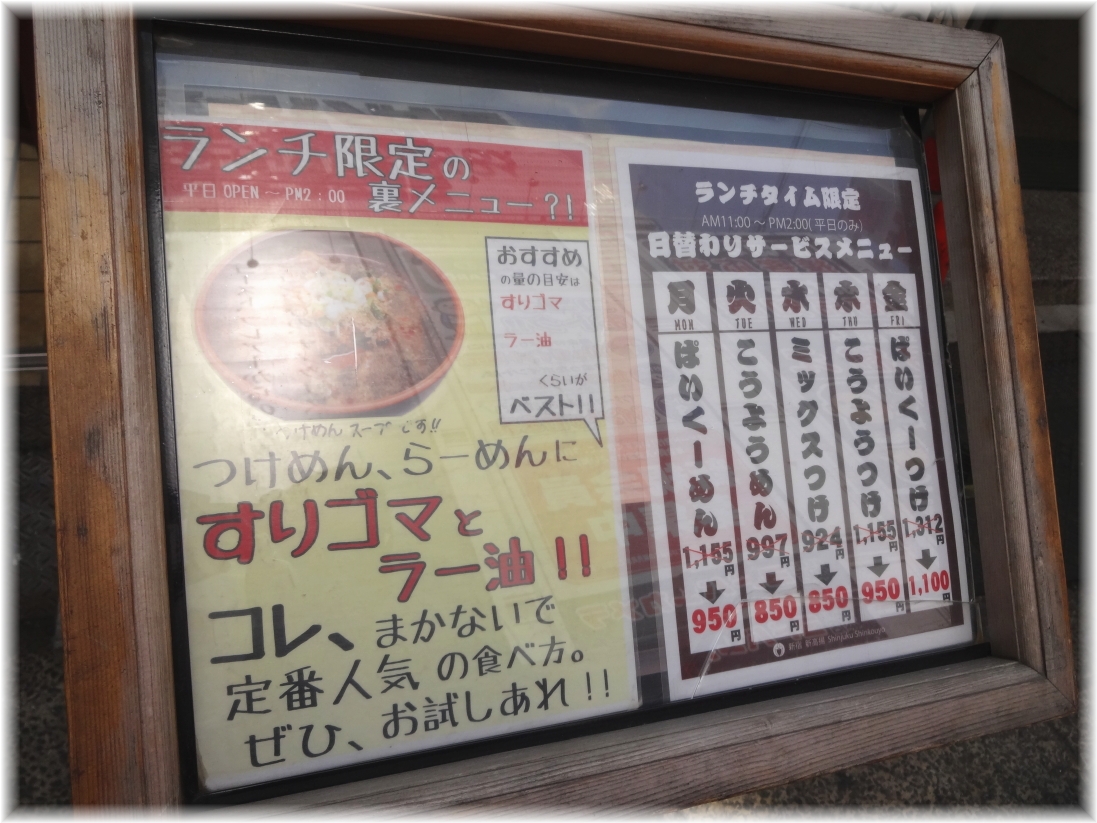 ランチ限定の
平日 OPEN ～ PM2：00 裏メニュー？！
おすすめ
の量の目安は
すりゴマ
ラー油
くらいが
ベスト！！
つけめん スープ です!!
つけめん、らーめんに
すりゴマと
ラー油！！
コレ、まかないで
定番人気 の食べ方。
ぜひ、お試しあれ！！
ランチタイム限定
AM11:00 ～ PM2:00(平日のみ)
日替わりサービスメニュー
月 MON ぱいくーめん 1,155円 950円
火 TUE こうようめん 997円 850円
水 WED ミックスつけ 924円 850円
木 THU こうようつけ 1,155円 950円
金 FRI ぱいくーつけ 1,312円 1,100円
新宿 新高揚 Shinjuku Shinkouyo